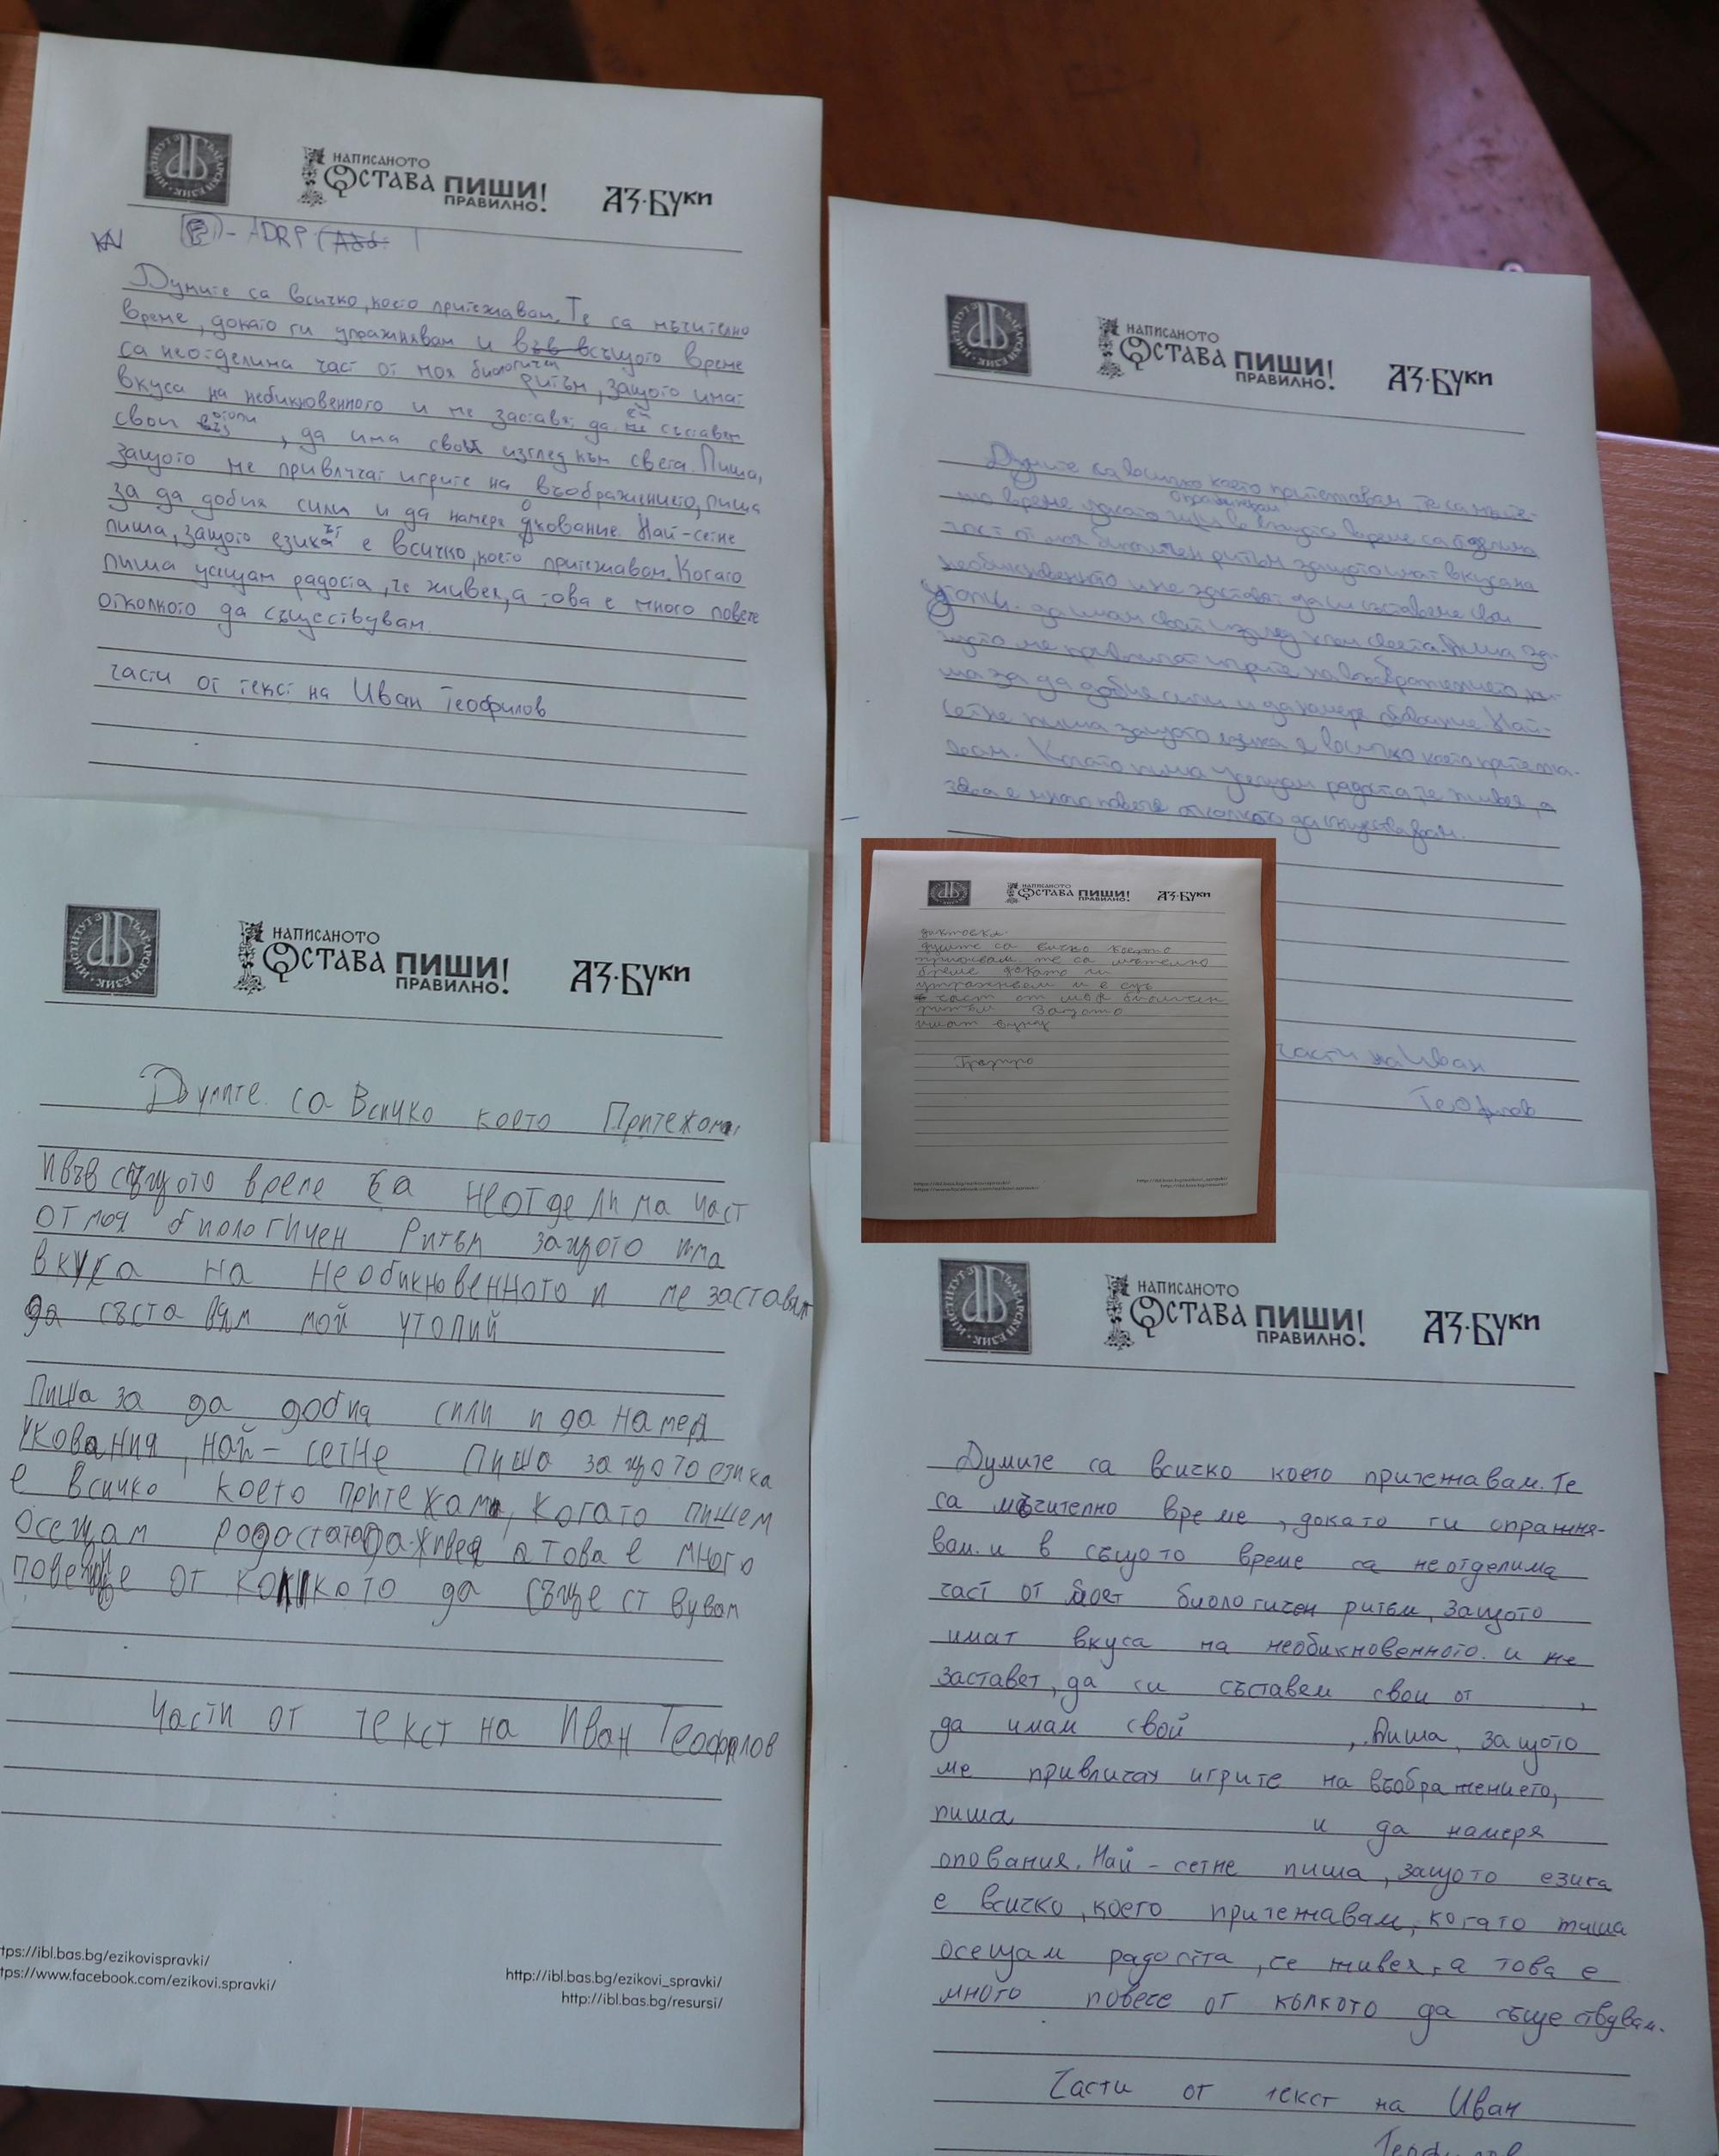 НАПИСАНОТО
ОСТАВА ПИШИ!
ПРАВИЛНО!
АЗ·БУКИ
ADRP
Думите са всичко, което притежавам. Те са мъчително
време, докато ги упражнявам и във всъщото време
са неотделима част от моя биологичен
ритъм, защото имат
вкуса на небикновенното и ме заставят да си съставем
свои утопи, да има свой изглед към света. Пиша,
защото ме привличат игрите на въображението, пиша
за да добия сили и да намеря окование. Най-сетне
пиша, защото езикът е всичко, което притежавам. Когато
пиша усещам радоста, че живея, а това е много повече
отколкото да съществувам.
части от текст на Иван Теофилов
НАПИСАНОТО
ОСТАВА ПИШИ!
ПРАВИЛНО!
АЗ·БУКИ
Думите са всичко което притежавам те са мъчите-
но време докато ги във същото време са
част от моя биологичен ритъм защото имат вкуса на
необикновеното и ме заставят да си съставеме свои
утопи. да имам свой изглед към света. Пиша за-
щото ме привличат игрите на въображението, пи-
ша за да добие сили и да намере Най-
сетне пиша защото езика е всичко което притежа-
вам. Когато пиша усещам радоста че живея, а
това е много повече отколкото да съществувам.
части на Иван
Теофилов
НАПИСАНОТО
ОСТАВА ПИШИ!
ПРАВИЛНО!
АЗ·БУКИ
Думите са Всичко което Притежам
и във същото време са неотделима част
от моя биологичен ритъм защото има
вкуса на необикновенното и ме заставят
да съставям мой утопий
Пиша за да добия сили и да намеря
укования, най-сетне пиша защото езика
е всичко което притежам, когато пишем
осещам живея а това е много
повече от колкото да съществувам
Части от текст на Иван Теофилов
tps://ibl.bas.bg/ezikovispravki/
tps://www.facebook.com/ezikovi.spravki/
http://ibl.bas.bg/ezikovi_spravki/
http://ibl.bas.bg/resursi/
НАПИСАНОТО
ОСТАВА ПИШИ!
ПРАВИЛНО!
АЗ·БУКИ
диктовка
думите са
те са
време докато ги
и в
част от моя
ритъм защото
имат
НАПИСАНОТО
ОСТАВА ПИШИ!
ПРАВИЛНО!
АЗ·БУКИ
Думите са всичко което притежавам. Те
са мъчително време, докато ги опражня-
вам. и в също то време са неотделима
част от моят биологичен ритъм, защото
имат вкуса на необикновенното. и ме
заставет, да си съставем свои от ,
да имам свой ,. Пиша, защото
ме привличат игрите на въображението,
пиша и да намеря
опования. Най-сетне пиша, защото езика
е всичко, което притежавам, когато пиша
осещам радостта, че живея, а това е
много повече от колкото да съществувам.
Части от текст на Иван
Теофилов